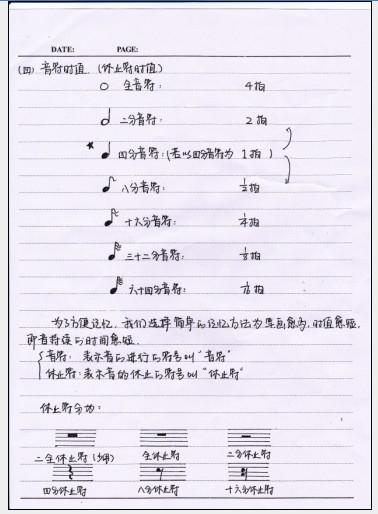 DATE: PAGE:
(四) 音符时值. (休止符时值)
全音符: 4拍
二分音符: 2拍
四分音符: (若以四分音符为 1拍 )
八分音符: 1/2拍
十六分音符: 1/4拍
三十二分音符: 1/8拍
六十四分音符: 1/16拍
为了方便记忆, 我们选择简单的记忆方法为: 尾画愈多, 时值愈短,
即音持续的时间愈短.
音符: 表示音的进行的符号叫"音符"
休止符: 表示音的休止的符号叫"休止符"
休止符分为:
二全休止符 全休止符 二分休止符
四分休止符 八分休止符 十六分休止符